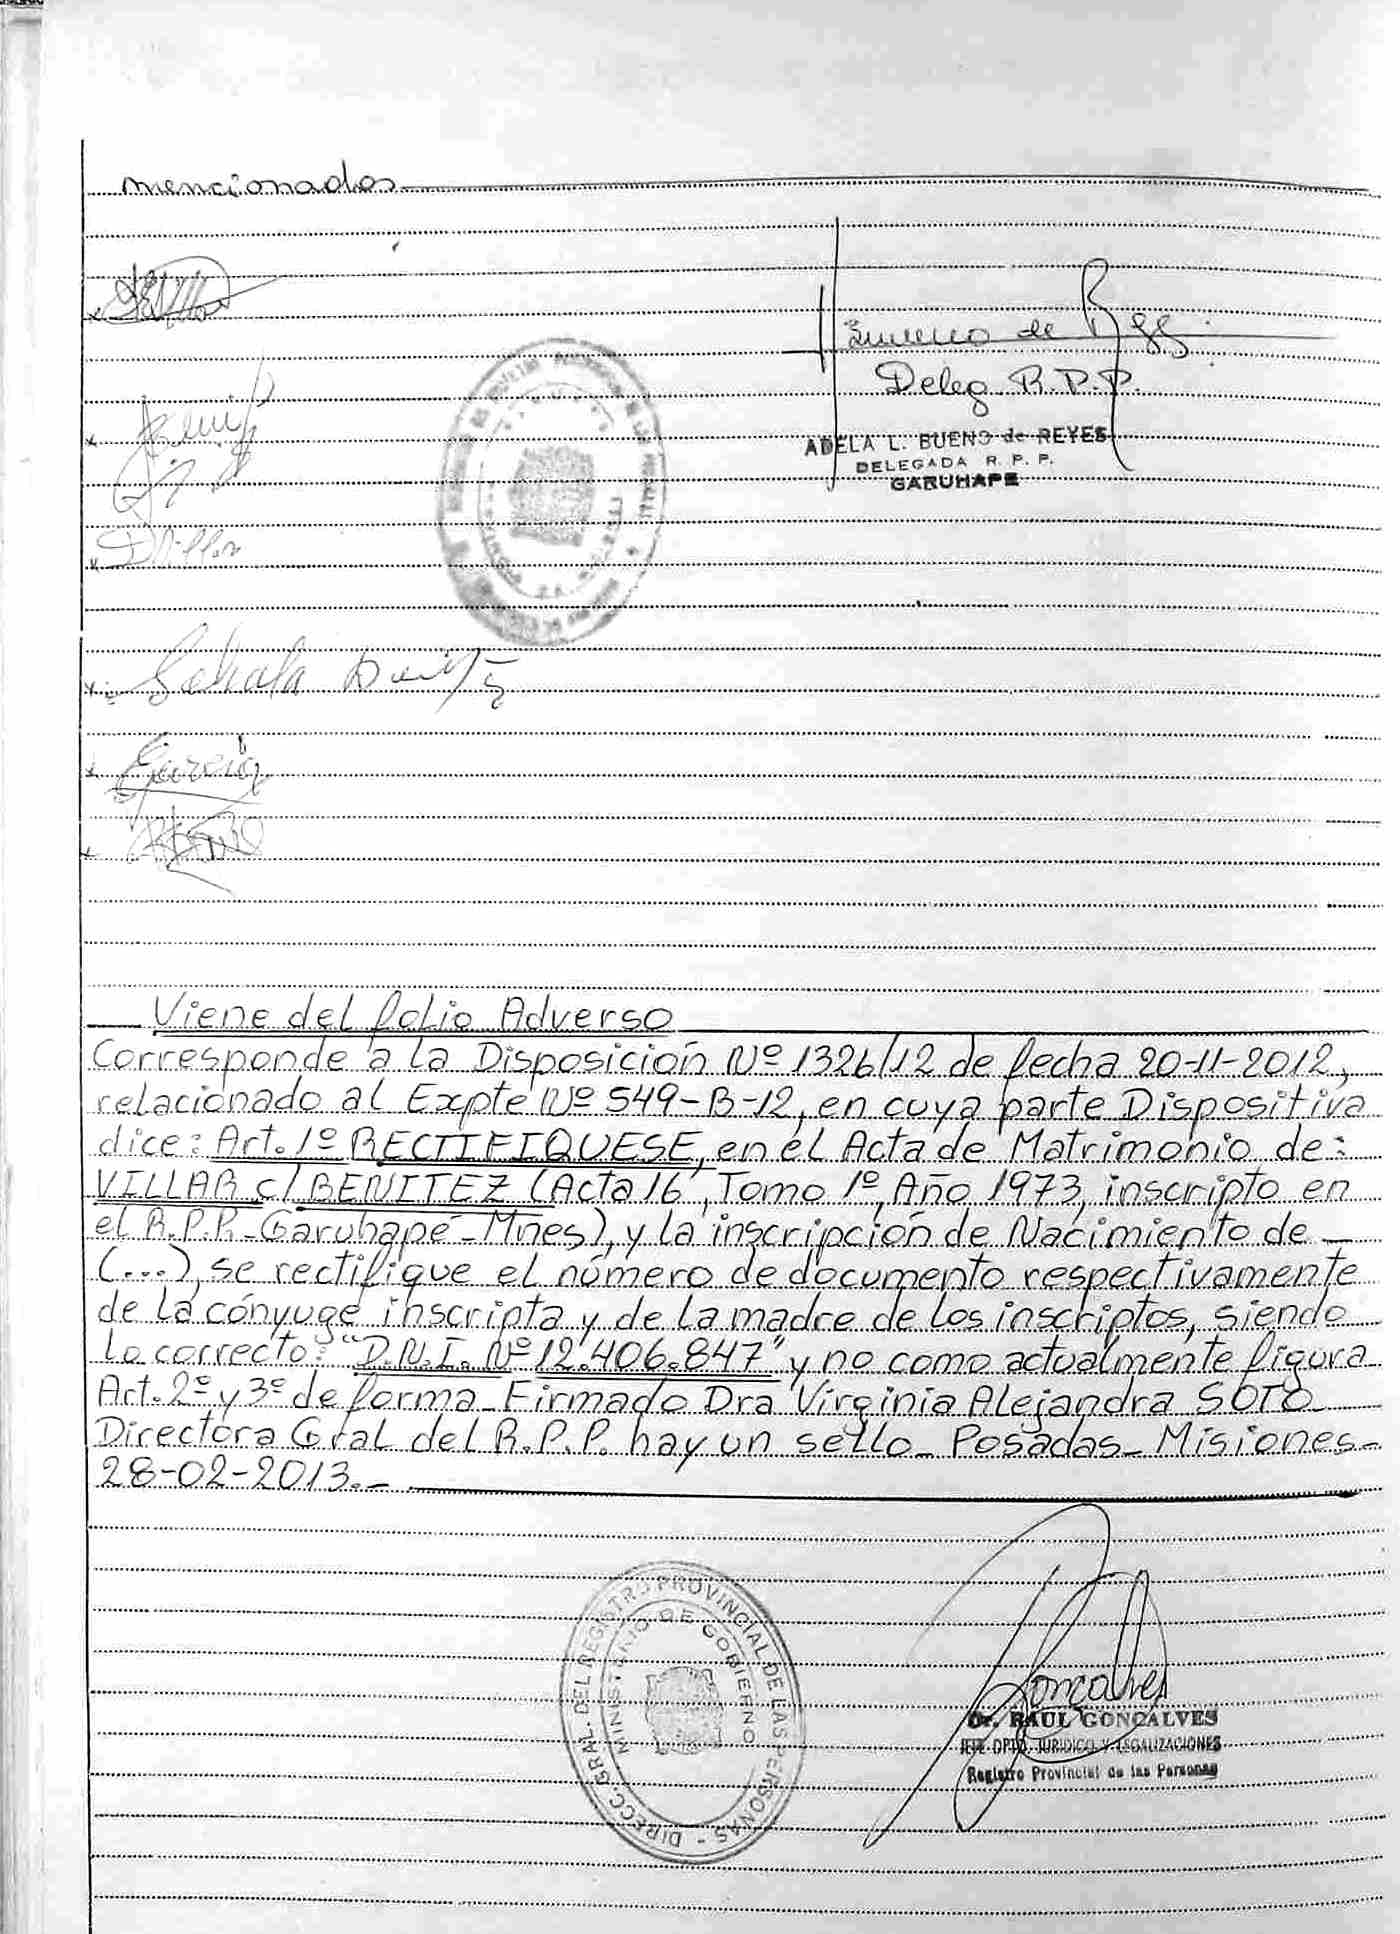 mencionados
Deleg. R.P.P.
ADELA L. BUENO de REYES
DELEGADA R. P. P.
GARUHAPE
DVillar
García
Viene del folio Adverso
Corresponde a la Disposición Nº 1326/12 de fecha 20-11-2012,
relacionado al Expte Nº 549-B-12, en cuya parte Dispositiva
dice: Art. 1º RECTIFIQUESE, en el Acta de Matrimonio de:
VILLAR c/ BENITEZ (Acta 16, Tomo 1º, Año 1973, inscripto en
el R.P.P.-Garuhapé-Mnes), y la inscripción de Nacimiento de
(...), se rectifique el número de documento respectivamente
de la cónyuge inscripta y de la madre de los inscriptos, siendo
lo correcto: "D.N.I. Nº 12.406.847" y no como actualmente figura
Art. 2º y 3º de forma_ Firmado Dra Virginia Alejandra SOTO_
Directora Gral del R.P.P. hay un sello_ Posadas_ Misiones_
28-02-2013._
DIRECC. GRAL. DEL REGISTRO PROVINCIAL DE LAS PERSONAS -
MINISTERIO DE GOBIERNO
Goncalves
Dr. RAUL GONCALVES
JEFE DPTO. JURIDICO Y LEGALIZACIONES
Registro Provincial de las Personas